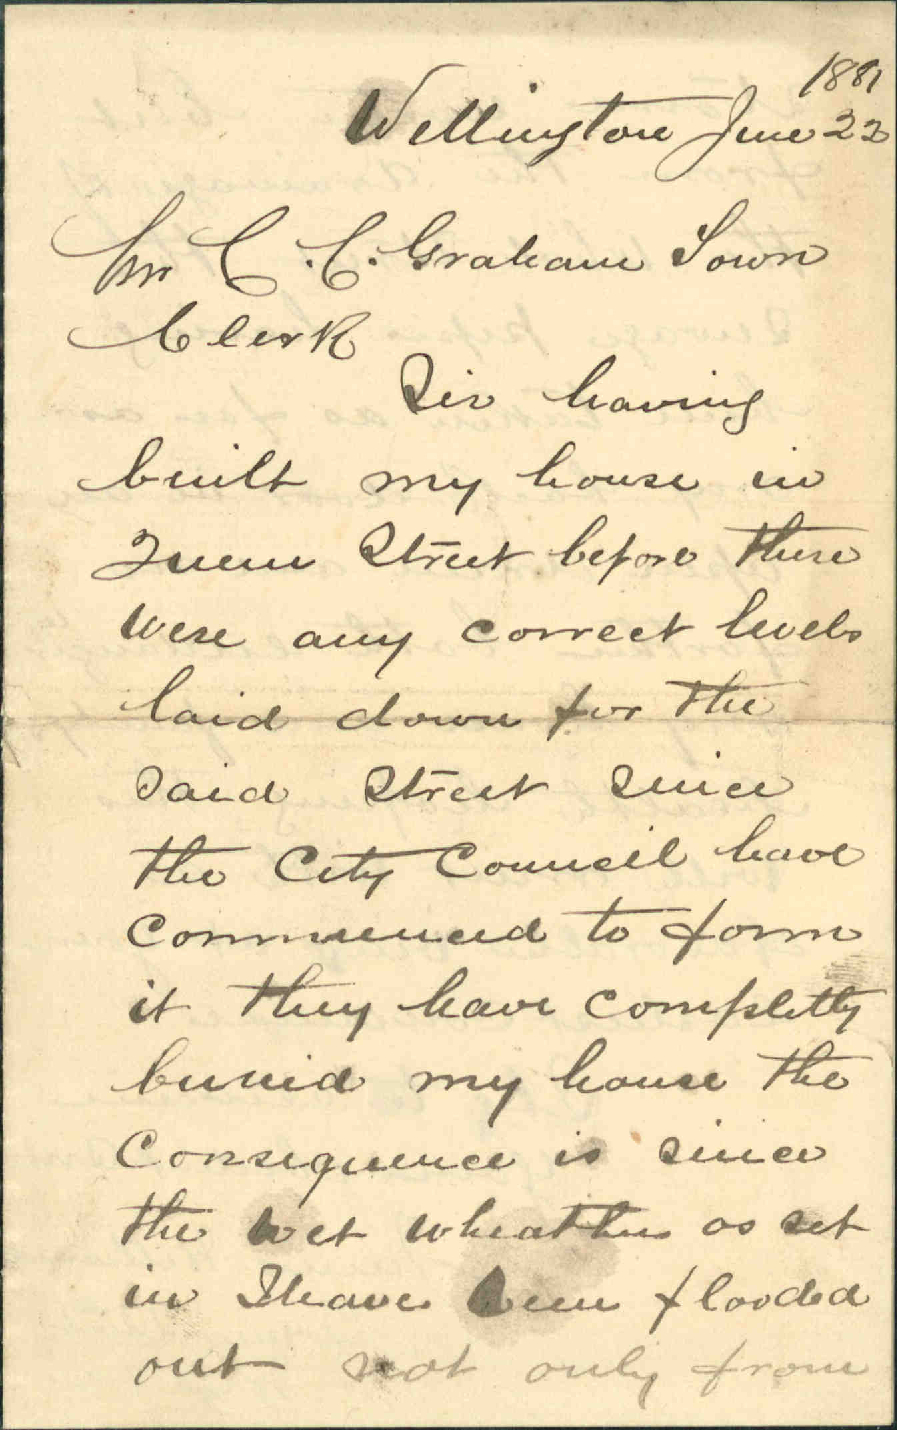 1881
Wellington June 22
Mr C. C. Graham Town
Clerk
Sir having
built my house in
Queen Street before there
were any correct levels
laid down for the
said Street since
the City Council have
Commenced to form
it they have completly
burried my house the
Consequence is since
the wet wheather as set
in I have been flooded
out not only from